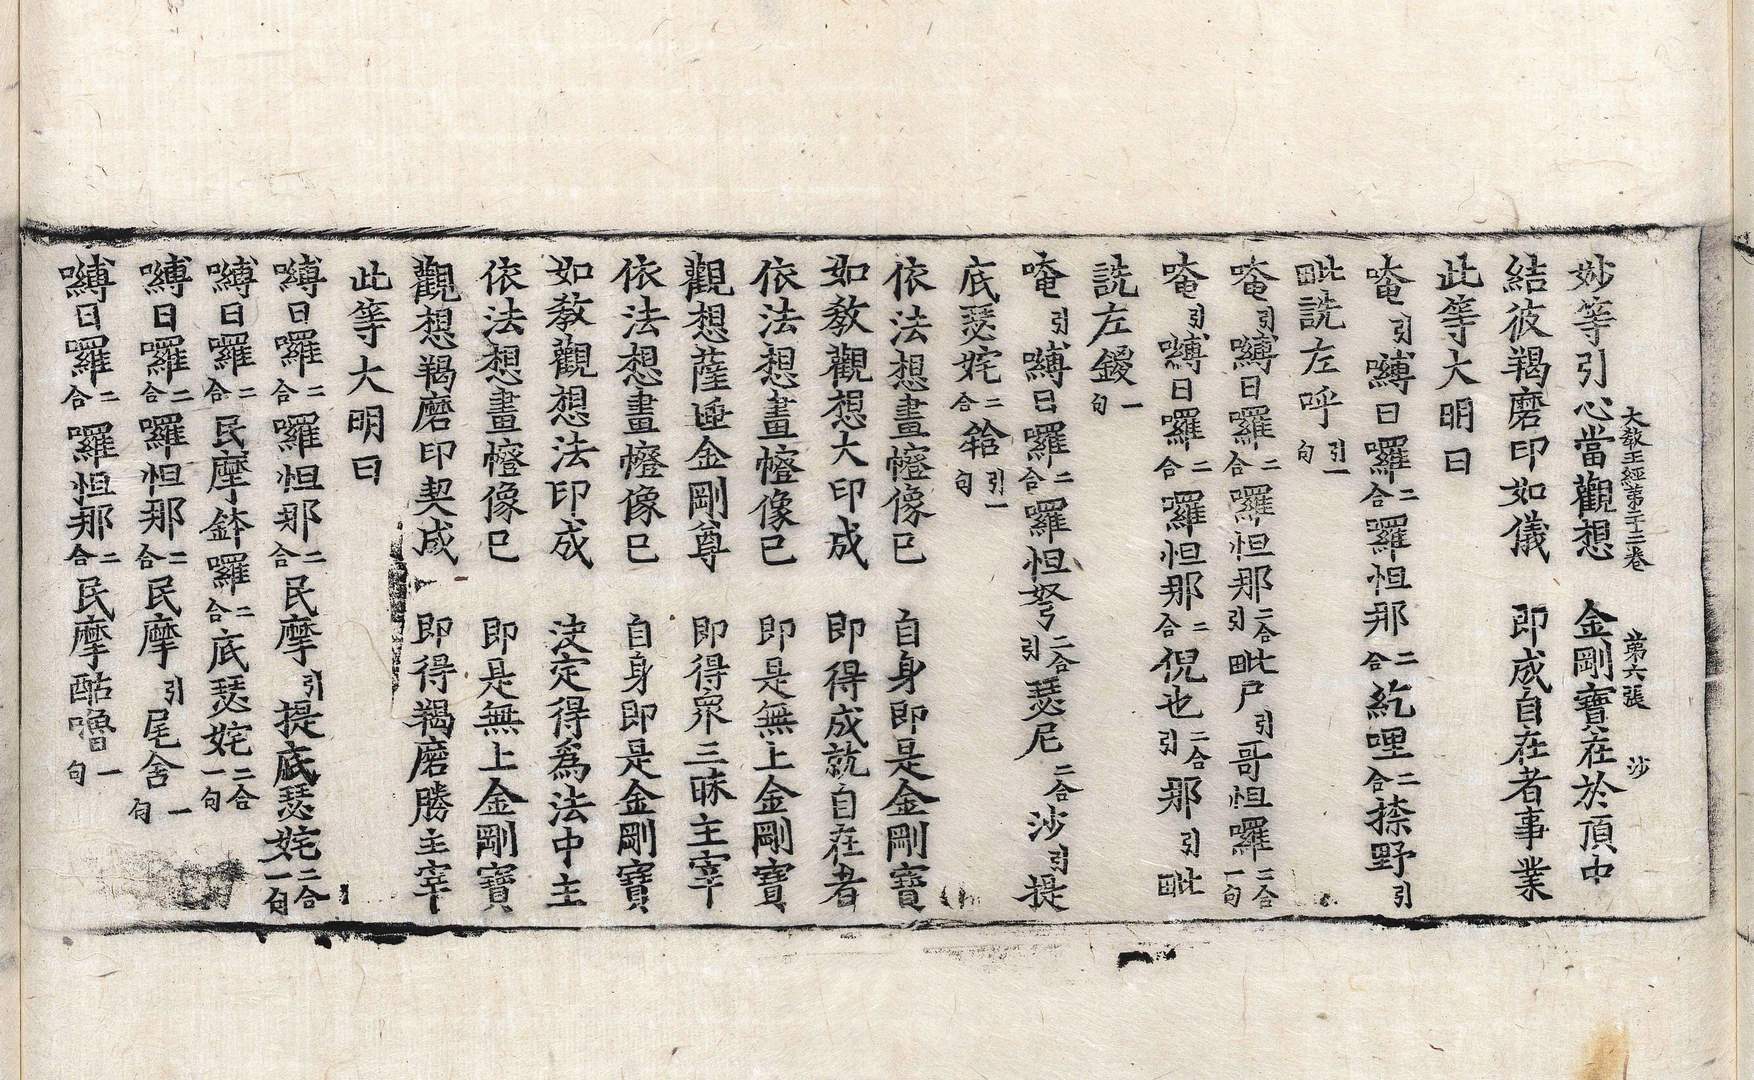 大教王經第二十二卷　第六張　沙
妙等引心當觀想　金剛寶在於頂中
結彼羯磨印如儀　即成自在者事業
此等大明曰
唵引嚩日囉二合囉怛那二合紇哩二合捺野引
毗詵左呼引一句
唵引嚩日囉二合囉怛那二合引毗尸引哥怛囉二合一句
唵引嚩日囉二合囉怛那二合倪也二合引那引毗
詵左鑁一句
唵引嚩日囉二合囉怛弩二合引瑟尼二合沙引提
底瑟姹二合鎝引一句
依法想畫㡧像已　自身即是金剛寶
如教觀想大印成　即得成就自在者
依法想畫㡧像已　即是無上金剛寶
觀想薩埵金剛尊　即得眾三昧主宰
依法想畫㡧像已　自身即是金剛寶
如教觀想法印成　決定得為法中主
依法想畫㡧像已　即是無上金剛寶
觀想羯磨印契成　即得羯磨勝主宰
此等大明曰
嚩日囉二合囉怛那二合民摩引提底瑟姹二合一句
嚩日囉二合民摩鉢囉二合底瑟姹二合一句
嚩日囉二合囉怛那二合民摩引尾舍一句
嚩日囉二合囉怛那二合民摩酤嚕一句